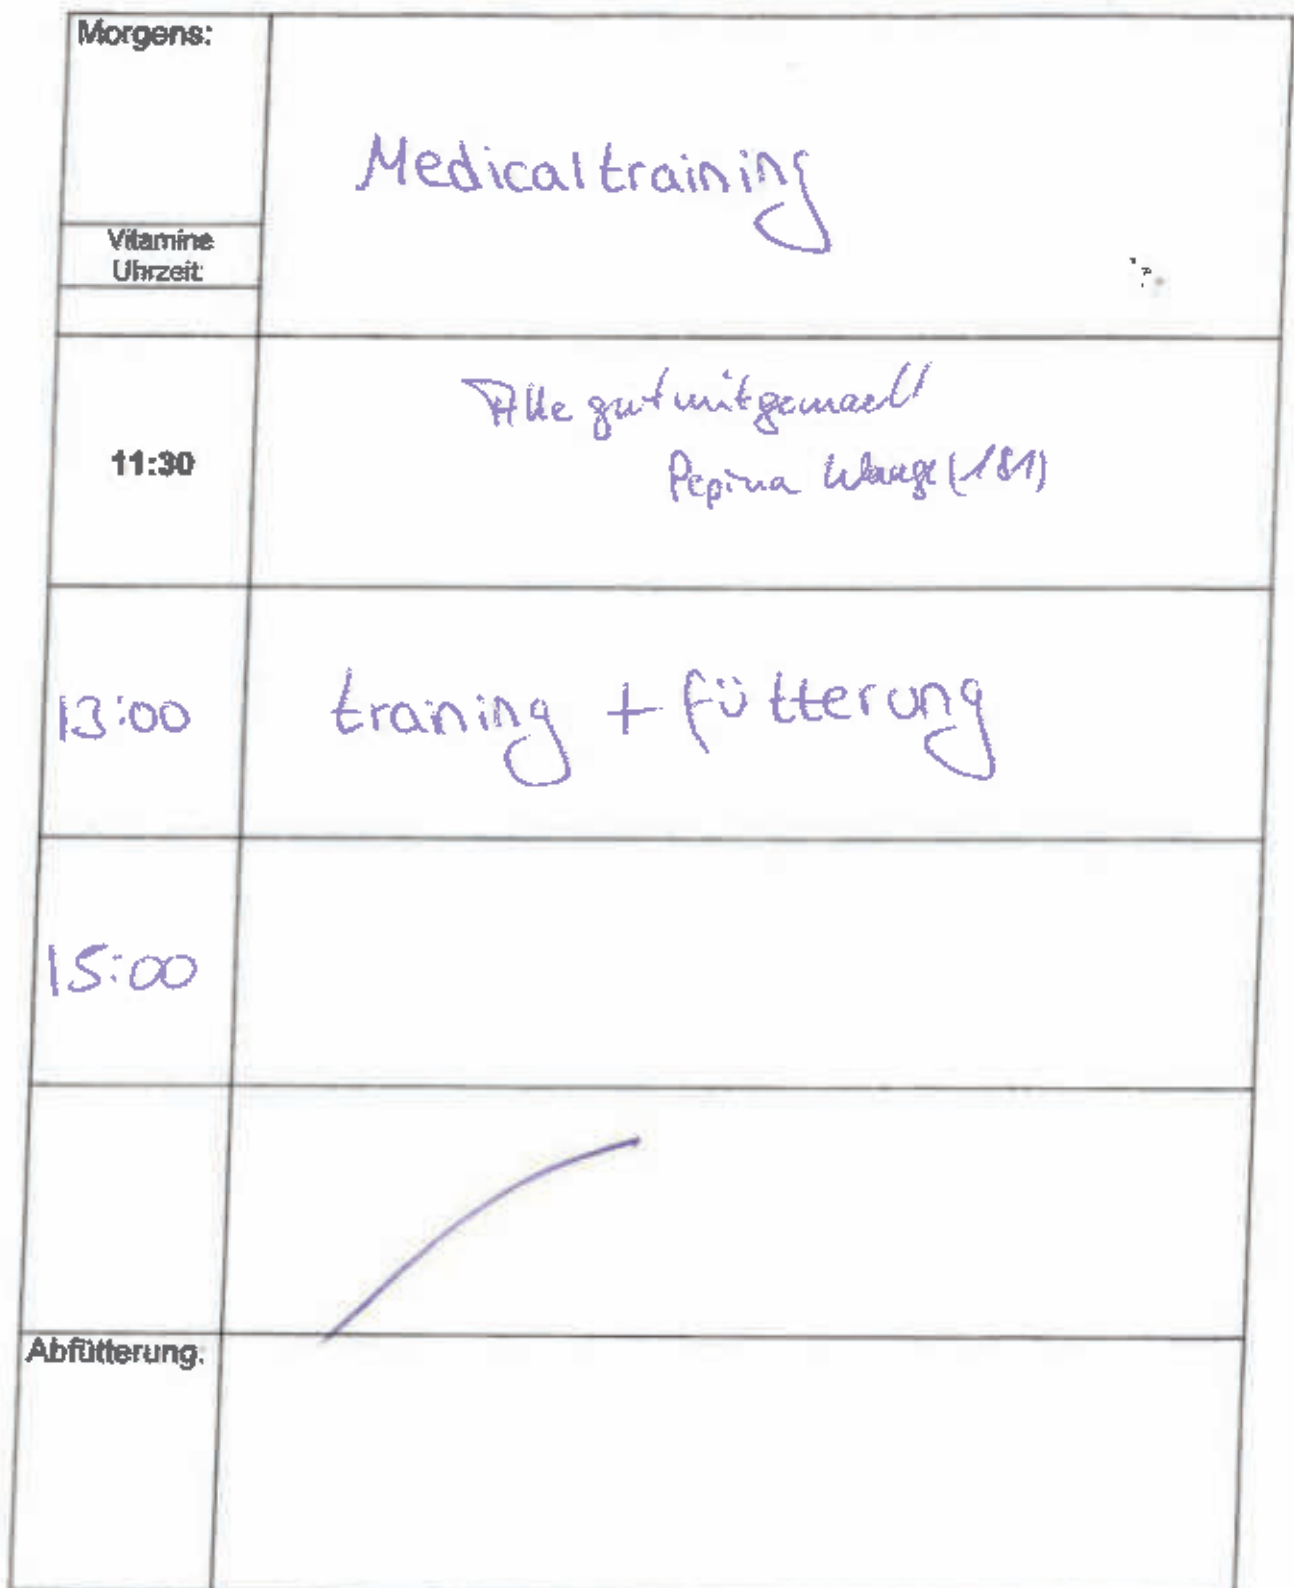 Morgens:
Medicaltraining
Vitamine
Uhrzeit:
11:30
Alle gut mitgemacht
Pepina (181)
13:00
training + fütterung
15:00
Abfütterung: